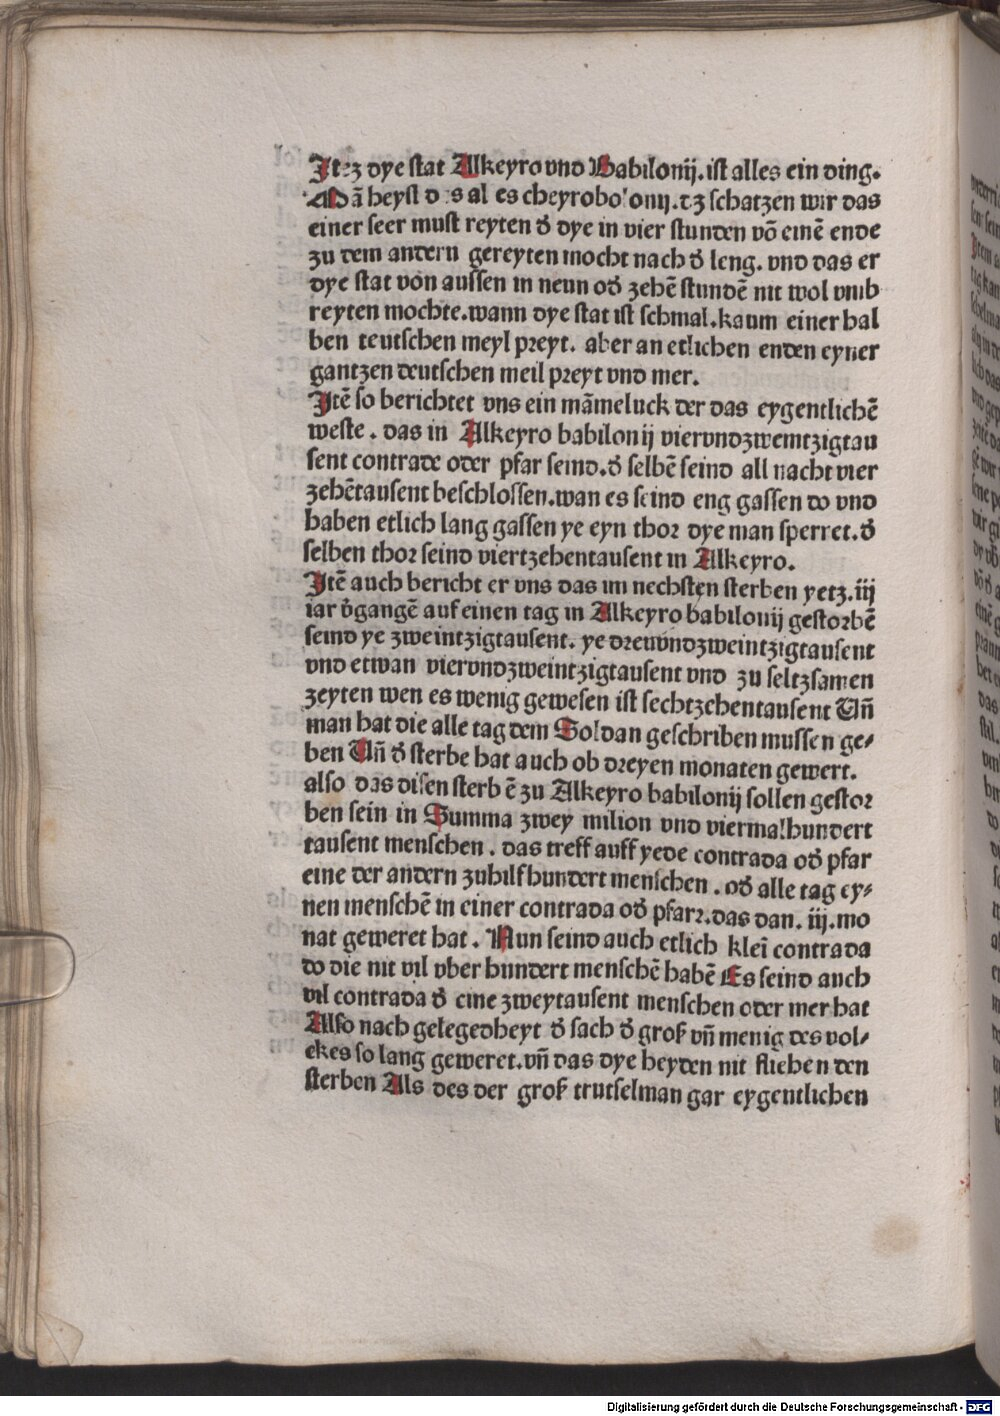 Itez dye stat Alkeyro vnd Babilonij. ist alles ein ding.
Mã heyst d s al es cheyrobo onij. dz schatzen wir das
einer seer must reyten đ dye in vier stunden võ einẽ ende
zu dem andern gereyten mocht nach đ leng. vnd das er
dye stat von aussen in neun ođ zehẽ stundẽ nit wol vmb
reyten mochte. wann dye stat ist schmal. kaum einer hal
ben teutschen meyl preyt. aber an etlichen enden eyner
gantzen deutschen meil preyt vnd mer.
Itẽ so berichtet vns ein mãmeluck der das eygentlichẽ
weste. das in Alkeyro babilonij viervndzweintzigtau
sent contrade oder pfar seind. đ selbẽ seind all nacht vier
zehẽtausent beschlossen. wan es seind eng gassen do vnd
haben etlich lang gassen ye eyn thor dye man sperret. đ
selben thor seind viertzehentausent in Alkeyro.
Itẽ auch bericht er vns das im nechsten sterben yetz. iij
iar v̉gangẽ auf einen tag in Alkeyro babilonij gestorbẽ
seind ye zweintzigtausent. ye dreuvndzweintzigtausent
vnd etwan viervndzweintzigtausent vnd zu seltzsamen
zeyten wen es wenig gewesen ist sechtzehentausent Uñ
man hat die alle tag dem Soldan geschriben mussen ge⸗
ben Uñ đ sterbe hat auch ob dreyen monaten gewert.
also das disen sterb ẽ zu Alkeyro babilonij sollen gestor
ben sein in Summa zwey milion vnd viermalhundert
tausent menschen. das treff auff yede contrada ođ pfar
eine der andern zuhilf hundert menschen. ođ alle tag ey⸗
nen menschẽ in einer contrada ođ pfarr. das dan. iij. mo
nat geweret hat. Nun seind auch etlich kleĩ contrada
do die nit vil vber hundert menschẽ habẽ Es seind auch
vil contrada đ eine zweytausent menschen oder mer hat
Also nach gelegedheyt đ sach đ groß vñ menig des vol⸗
ckes so lang geweret. vñ das dye heyden nit fliehen den
sterben Als des der groß trutselman gar eygentlichen
Digitalisierung gefördert durch die Deutsche Forschungsgemeinschaft - DFG